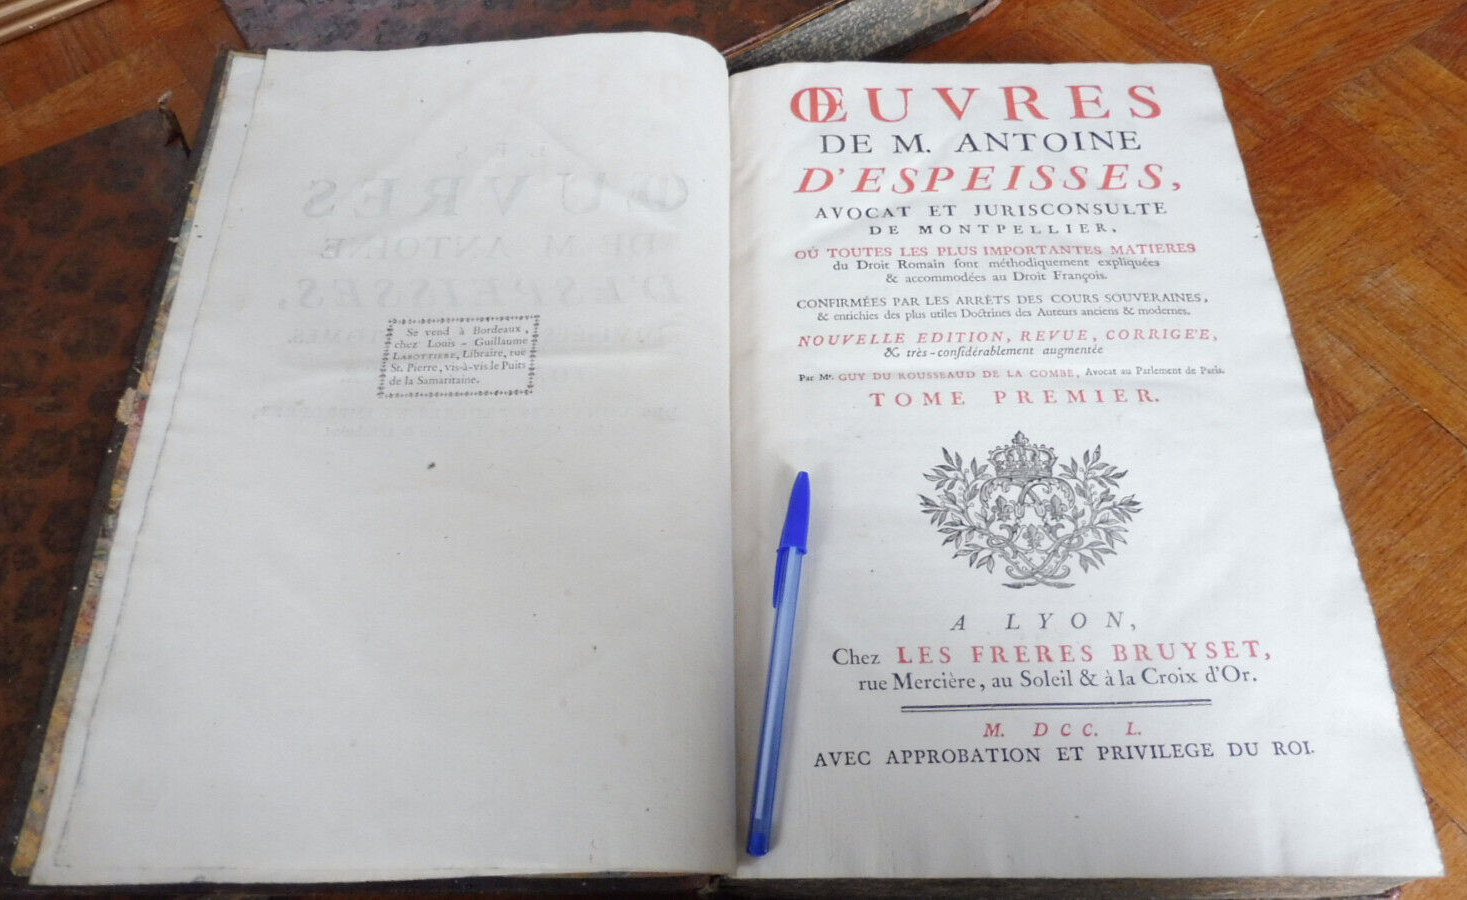 Se vend à Bordeaux,
chez Louis - Guillaume
LABOTTIERE, Libraire, rue
St. Pierre, vis-à-vis le Puits
de la Samaritaine.
ŒUVRES
DE M. ANTOINE
D'ESPEISSES,
AVOCAT ET JURISCONSULTE
DE MONTPELLIER,
OÙ TOUTES LES PLUS IMPORTANTES MATIERES
du Droit Romain sont méthodiquement expliquées
& accommodées au Droit François.
CONFIRMÉES PAR LES ARRÊTS DES COURS SOUVERAINES,
& enrichies des plus utiles Doctrines des Auteurs anciens & modernes.
NOUVELLE EDITION, REVUE, CORRIGE'E,
& très-considérablement augmentée
Par Mr. GUY DU ROUSSEAUD DE LA COMBE, Avocat au Parlement de Paris.
TOME PREMIER.
A LYON,
Chez LES FRERES BRUYSET,
rue Mercière, au Soleil & à la Croix d'Or.
M. DCC. L.
AVEC APPROBATION ET PRIVILEGE DU ROI.